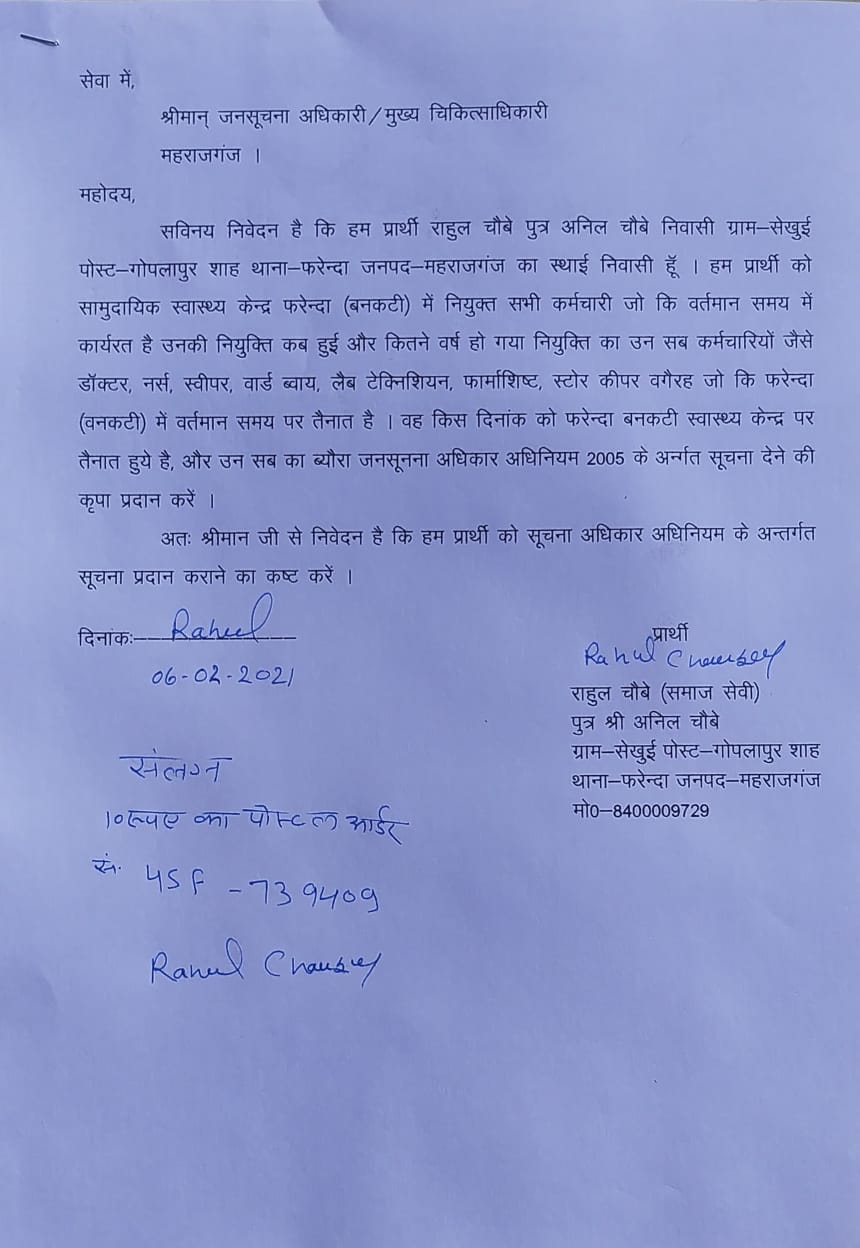 सेवा में,
श्रीमान् जनसूचना अधिकारी/मुख्य चिकित्साधिकारी
महराजगंज ।
महोदय,
सविनय निवेदन है कि हम प्रार्थी राहुल चौबे पुत्र अनिल चौबे निवासी ग्राम–सेखुई
पोस्ट–गोपलापुर शाह थाना–फरेन्दा जनपद–महराजगंज का स्थाई निवासी हूँ । हम प्रार्थी को
सामुदायिक स्वास्थ्य केन्द्र फरेन्दा (बनकटी) में नियुक्त सभी कर्मचारी जो कि वर्तमान समय में
कार्यरत है उनकी नियुक्ति कब हुई और कितने वर्ष हो गया नियुक्ति का उन सब कर्मचारियों जैसे
डॉक्टर, नर्स, स्वीपर, वार्ड ब्वाय, लैब टेक्निशियन, फार्माशिष्ट, स्टोर कीपर वगैरह जो कि फरेन्दा
(वनकटी) में वर्तमान समय पर तैनात है । वह किस दिनांक को फरेन्दा बनकटी स्वास्थ्य केन्द्र पर
तैनात हुये है, और उन सब का ब्यौरा जनसूनना अधिकार अधिनियम 2005 के अर्न्गत सूचना देने की
कृपा प्रदान करें ।
अतः श्रीमान जी से निवेदन है कि हम प्रार्थी को सूचना अधिकार अधिनियम के अन्तर्गत
सूचना प्रदान कराने का कष्ट करें ।
दिनांकः– Rahul
06-02-2021
प्रार्थी
Rahul Chaubey
राहुल चौबे (समाज सेवी)
पुत्र श्री अनिल चौबे
ग्राम–सेखुई पोस्ट–गोपलापुर शाह
थाना–फरेन्दा जनपद–महराजगंज
मो0–8400009729
संलग्न
10रूपए का पोस्टल आर्डर
सं. 45F - 739409
Rahul Chaubey